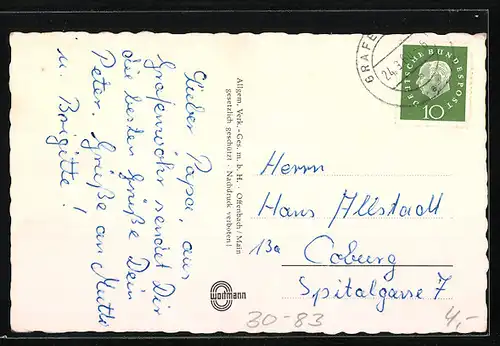 Lieber Papa, aus
Grafenwöhr sendet Dir
die besten Grüße Dein
Peter. Grüße an Mutti
u. Brigitte!
Allgem. Verk.-Ges. m. b. H. · Offenbach/Main
gesetzlich geschützt · Nachdruck verboten!
GRAFE
24.3.
DEUTSCHE BUNDESPOST
10
Herrn
Hans Illstadt
13a Coburg
Spitalgasse 7
woitmann
30-83
4,-